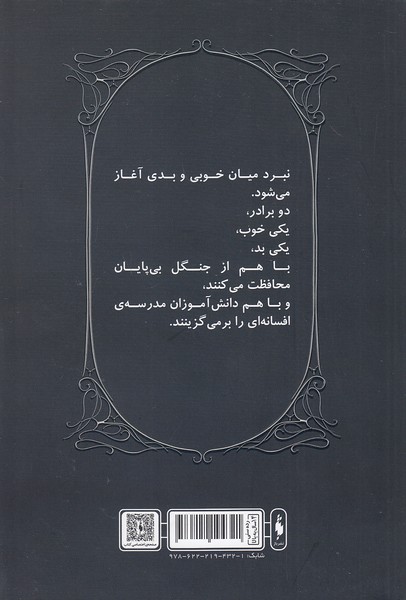 نبرد میان خوبی و بدی آغاز
می‌شود.
دو برادر،
یکی خوب،
یکی بد،
با هم از جنگل بی‌پایان
محافظت می‌کنند،
و با هم دانش‌آموزان مدرسه‌ی
افسانه‌ای را برمی‌گزینند.
صفحه‌ی اختصاصی کتاب
شابک: ۹۷۸-۶۲۲-۲۱۹-۴۳۲-۱
نشر باژ